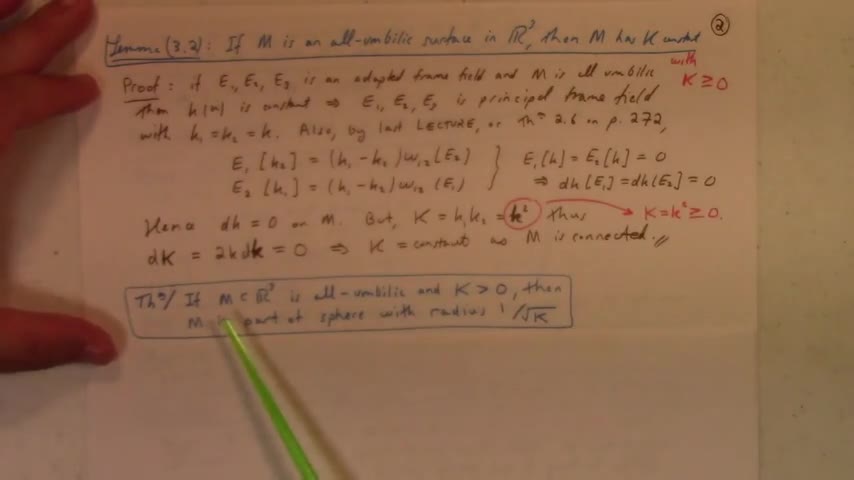 ②
Lemma (3.2): If M is an all-umbilic surface in ℝ³, then M has K constant
with
K ≥ 0
Proof: if E₁, E₂, E₃ is an adapted frame field and M is all umbilic
then k(u) is constant ⇒ E₁, E₂, E₃ is principal frame field
with k₁ = k₂ = k. Also, by last LECTURE, or Thm 2.6 on p. 272,
E₁[k₂] = (k₁ - k₂) ω₁₂(E₂) } E₁[k] = E₂[k] = 0
E₂[k₁] = (k₁ - k₂) ω₁₂(E₁) ⇒ dk[E₁] = dk(E₂) = 0
Hence dk = 0 on M. But, K = k₁k₂ = k² thus → K = k² ≥ 0.
dK = 2kdk = 0 ⇒ K = constant as M is connected.//
Thm/ If M ⊂ ℝ³ is all-umbilic and K > 0, then
M is part of sphere with radius 1/√K